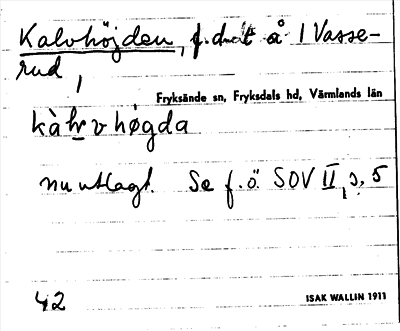 Kalvhöjden, f.d. nät å 1 Vasse-
rud,
Fryksände sn, Fryksdals hd, Värmlands län
kàlvhøgda
nu utlagt. Se f.ö. SOV II, s. 5
42
ISAK WALLIN 1911